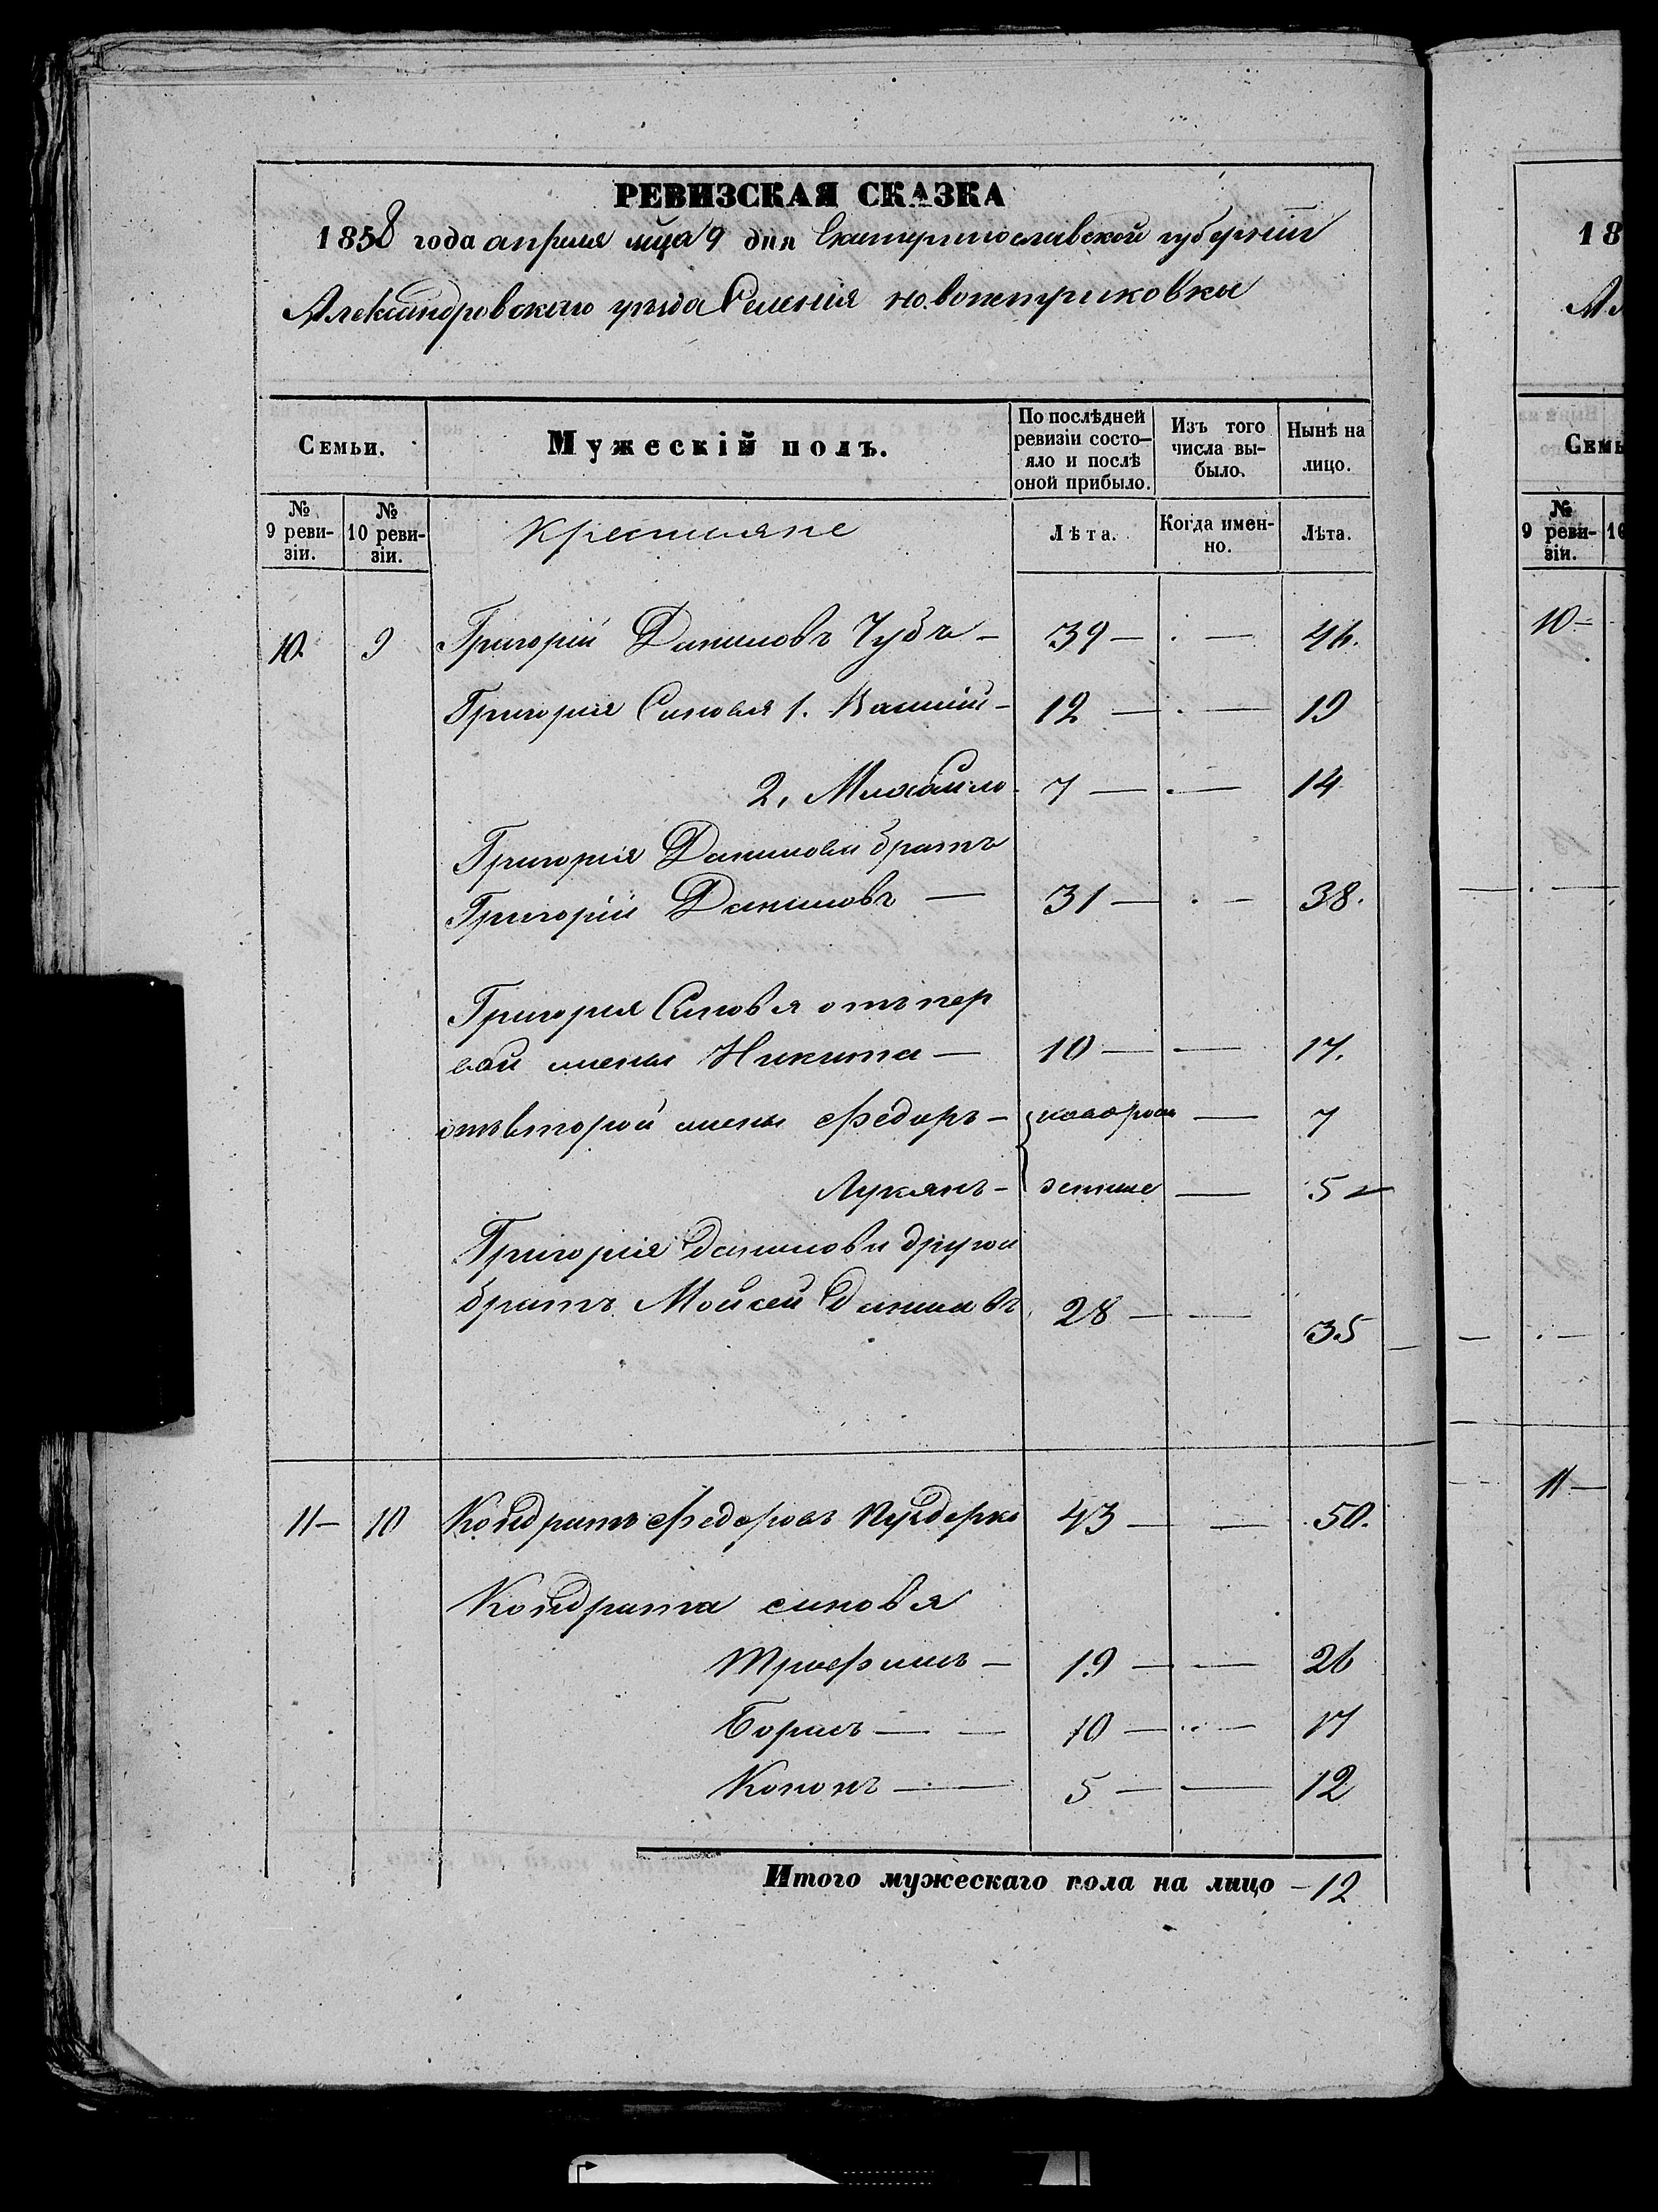 РЕВИЗСКАЯ СКАЗКА
1858 года апреля мца 9 дня Екатеринославской губерніи
Александровскаго уезда Селенія новопетриковки
Семьи. Мужескій полъ. По послѣдней ревизіи состо- яло и послѣ оной прибыло. Изъ того числа вы- было. Нынѣ на лицо.
№ 9 реви- зіи. № 10 реви- зіи. Крестьяне Лѣта. Когда имен- но. Лѣта.
10. 9 Григорій Даниловъ Чубъ — 39 — 46.
Григорія Синовья 1. Василій — 12 — 19
2. Михайло — 7 — 14
Григорія Данилова братъ
Григорій Даниловъ — 31 — 38.
Григорія Синовья отъ пер
вой жены Никита — 10 — 17.
отъ второй жены Федоръ — новорож — 7
Лукянъ — денные — 5
Григорія Данилова другой
братъ Мойсей Даниловъ 28 — 35
11 — 10 Кондратъ Федоровъ 43 — 50.
Кондрата синовья
Трофимъ — 19 — 26
Борисъ — 10 — 17
Кононъ — 5 — 12
Итого мужескаго пола на лицо — 12
18
Семь
№ 9 реви- зіи. 10
10 —
11 —